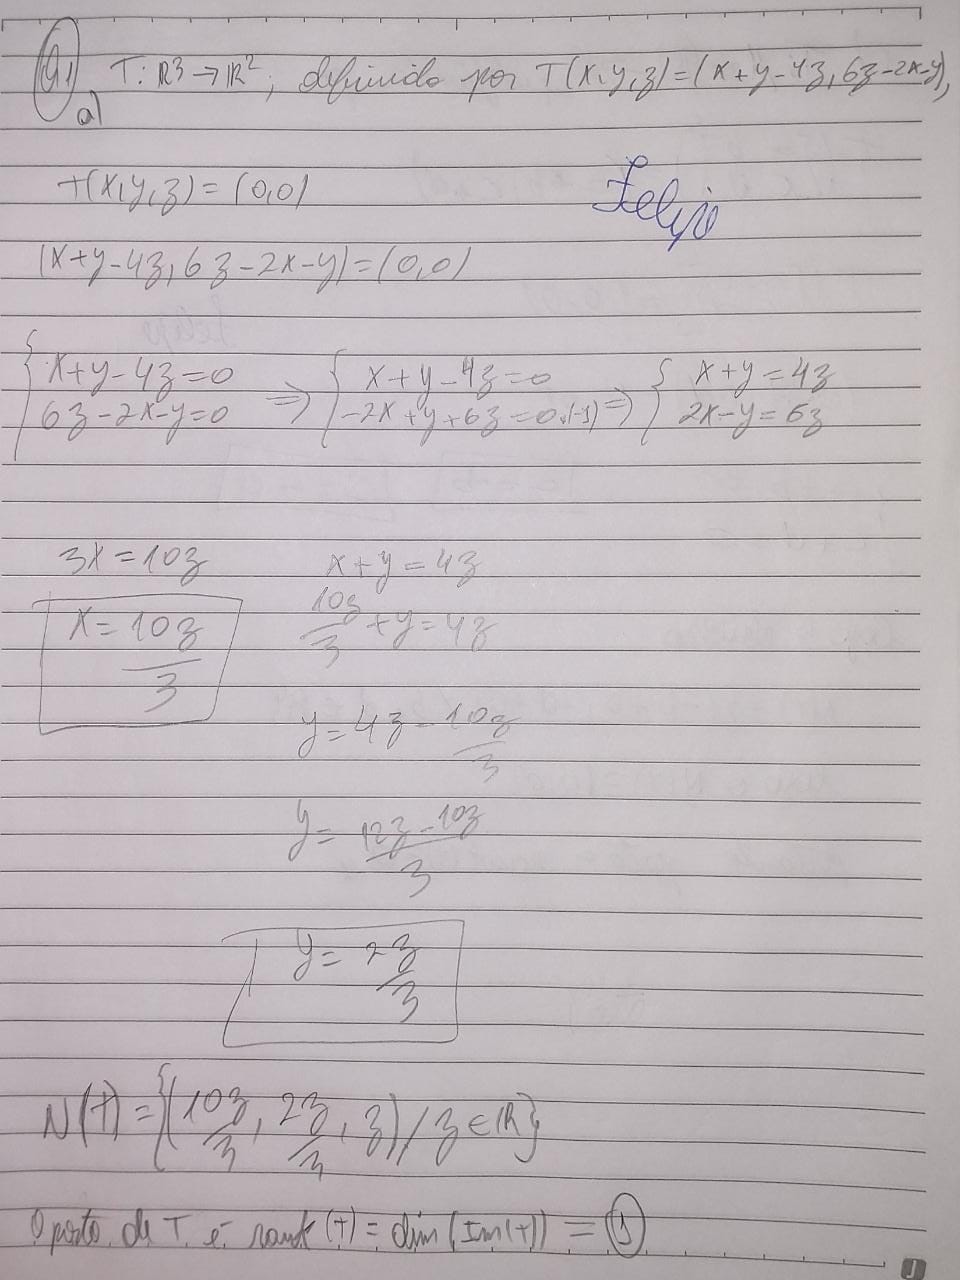 Q1 T: R³ → R², definido por T(x,y,z)=(x+y-4z, 6z-2x-y),
a)
T(x,y,z) = (0,0)
Felipo
(x+y-4z, 6z-2x-y) = (0,0)
{ x+y-4z=0 ⇒ { x+y-4z=0 ⇒ { x+y=4z
6z-2x-y=0 -2x+y+6z=0.(-1) 2x-y=6z
3x=10z x+y=4z
x=10z/3 10z/3+y=4z
y=4z-10z/3
y=12z-10z/3
y=2z/3
N(T)={(10z/3, 2z/3, z)/z∈R}
O posto de T é rank(T)=dim(Im(T))=1